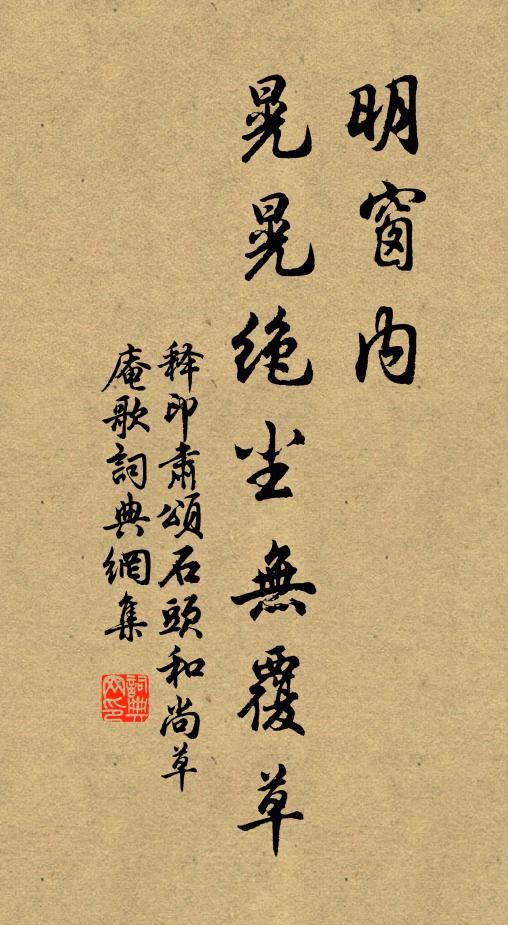 明窗内
晃晃绝尘無覆草
释印肅頌石頭和尚草
庵歌詞典網集
詞典